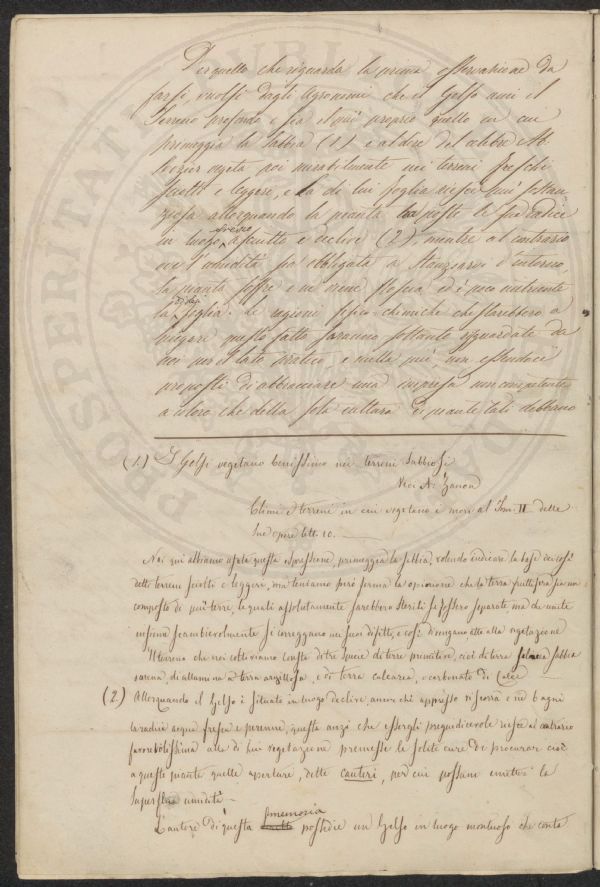 Per quello che riguarda la prima osservazione da
farsi, vuolsi dagli Agronomi che il Gelso ami il
terreno profondo e sia il più proprio quello in cui
primeggia la sabbia (1) e al dire del celebre
vegeta poi mirabilmente nei terreni freschi
asciutti e leggeri, e la di lui foglia riesce più sostan
ziosa allorquando la pianta ha poste le sue radice
in luogo fresco asciutto e declive (2), mentre al contrario
ove l'umidità sia obbligata a stanzarvi d'intorno,
la pianta soffre e ne viene floscia ed è poco nutriente
la di lei foglia. Le ragioni fisico-chimiche che starebbero a
spiegare questo fatto saranno soltanto sguardate da
noi per il lato pratico e nulla più, non essendoci
proposti di abbracciare una impresa non competente
a coloro che della sola cultura di piante tali debbano
(1) I Gelsi vegetano benissimo nei terreni sabbiosi
Vedi A. Zanon
Climi e terreni in cui vegetano i mori al Tom. II delle
Sue opere lett. 10.
Noi qui abbiamo usata questa espressione, primeggia la sabbia, volendo indicare la base dei così
detti terreni sciolti e leggeri, ma teniamo però ferma la opinione che la terra fruttifera sia un
composto di più terre, le quali assolutamente sarebbero sterili se fossero separate ma che unite
insieme scambievolmente si correggano nei suoi difetti, e così divengano atte alla vegetazione
Il terreno che noi coltiviamo consta di tre specie di terre primitive, cioè di terra sabbia
, di allumina o terra argillosa, e di terra calcarea, o carbonato di Calce
(2) Allorquando il Gelso è situato in luogo declive, ancorché appresso vi scorra e ne bagni
le radici acqua fresca e perenne, questa anzi che essergli pregiudicevole riesce al contrario
favorevolissima alla di lui vegetazione premesse le solite cure di procurar cioè
a queste piante quelle aperture, dette cauteri, per cui possano emettere la
superflua umidità
L'autore di questa memoria possiede un Gelso in luogo montuoso che conta